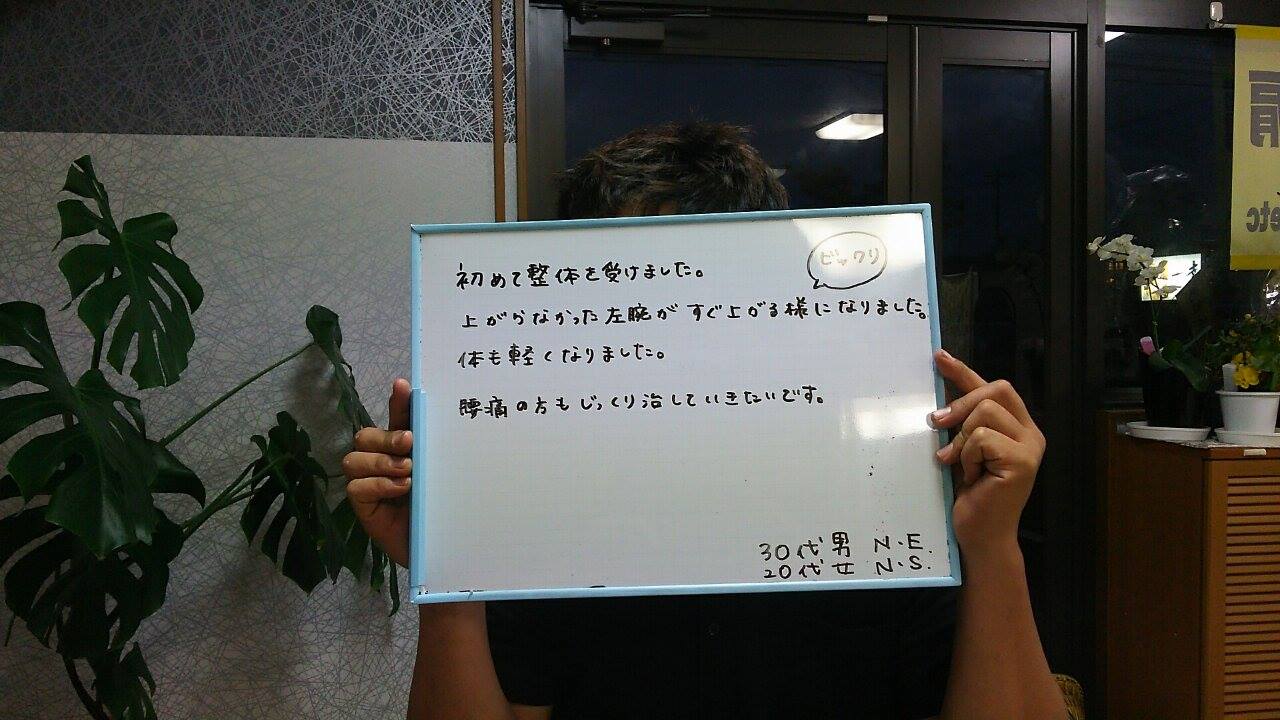 ビックリ
初めて整体を受けました。
上がらなかった左腕がすぐ上がる様になりました。
体も軽くなりました。
腰痛の方もじっくり治していきたいです。
30代男 N.E.
20代女 N.S.
肩
etc